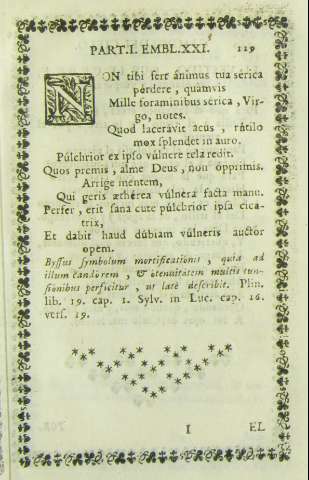 PART.I. EMBL.XXI. 119
NON tibi fert ánimus tua sérica
pérdere, quamvis
Mille foraminibus sérica, Vir-
go, notes.
Quod laceravit acus, rútilo
mox splendet in auro.
Púlchrior ex ipso vúlnere tela redit.
Quos premis, alme Deus, non ópprimis.
Arrige mentem,
Qui geris æthérea vúlnera facta manu.
Perfer, erit sana cute púlchrior ipsa cica-
trix,
Et dabit haud dúbiam vúlneris auctor
opem.
Byssus symbolum mortificationis, quia ad
illum candorem, & tenuitatem multis tun-
sionibus perficitur, ut latè describit. Plin.
lib. 19. cap. 1. Sylv. in Luc. cap. 16.
vers. 19.
I EL